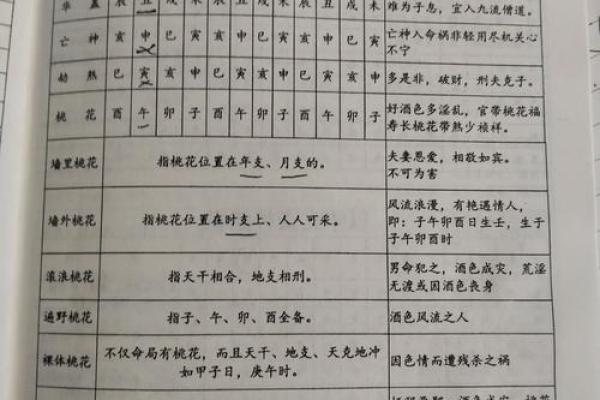 华 盖 辰 丑 戌 未 辰 丑 戌 未 辰 丑 戌 未 难为子息，宜入九流僧道。
亡 神 亥 申 巳 寅 亥 申 巳 寅 亥 申 巳 寅 亡神入命祸非轻用尽机关心
不宁
劫 煞 巳 寅 亥 申 巳 寅 亥 申 巳 寅 亥 申 多是非，破财，刑夫克子。
桃 花 酉 午 卯 子 酉 午 卯 子 酉 午 卯 子 好酒色多淫乱，官带桃花福
寿长桃花带煞少祯祥。
墙里桃花 指桃花位置在年支、月支的。 夫妻恩爱，相敬如宾。
不可为害
墙外桃花 指桃花位置在时支上、人人可采。 风流浪漫，有艳遇情人，
即：子午卯酉日生壬，生于
子午卯酉时
滚浪桃花 指天干相合，地支相刑。 男命犯之，酒色成灾，荒淫
无渡或因酒色丧身
遍野桃花 指子、午、卯、酉全备。 酒色风流之人
裸体桃花 不仅命局有桃花，而且天干、地支、天克地冲
如甲子日，庚午时。 因色情而遭残杀之祸